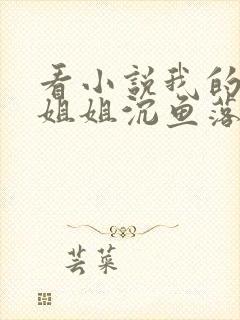 看小说我的
姐姐沉鱼落
芸菜